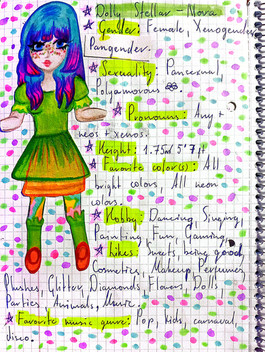 Dolly Stellar-Nova
Gender: Female, Xenogender
Pangender.
Sexuality: Pansexual
Polyamorous
Pronouns: Any +
neos + xenos.
Height: 1.75m 5'7 ft
Favorite color(s): All
bright colors, All neon
colors.
Hobby: Dancing, Singing,
Painting, Fun, Gaming,
Likes: Sweets, being good,
Cosmetics, Makeup, Perfumes,
Plushes, Glitter, Diamonds, Flowers, Dolls,
Parties, Animals, Music.
Favorite music genre: Pop, kids, carnaval,
disco.